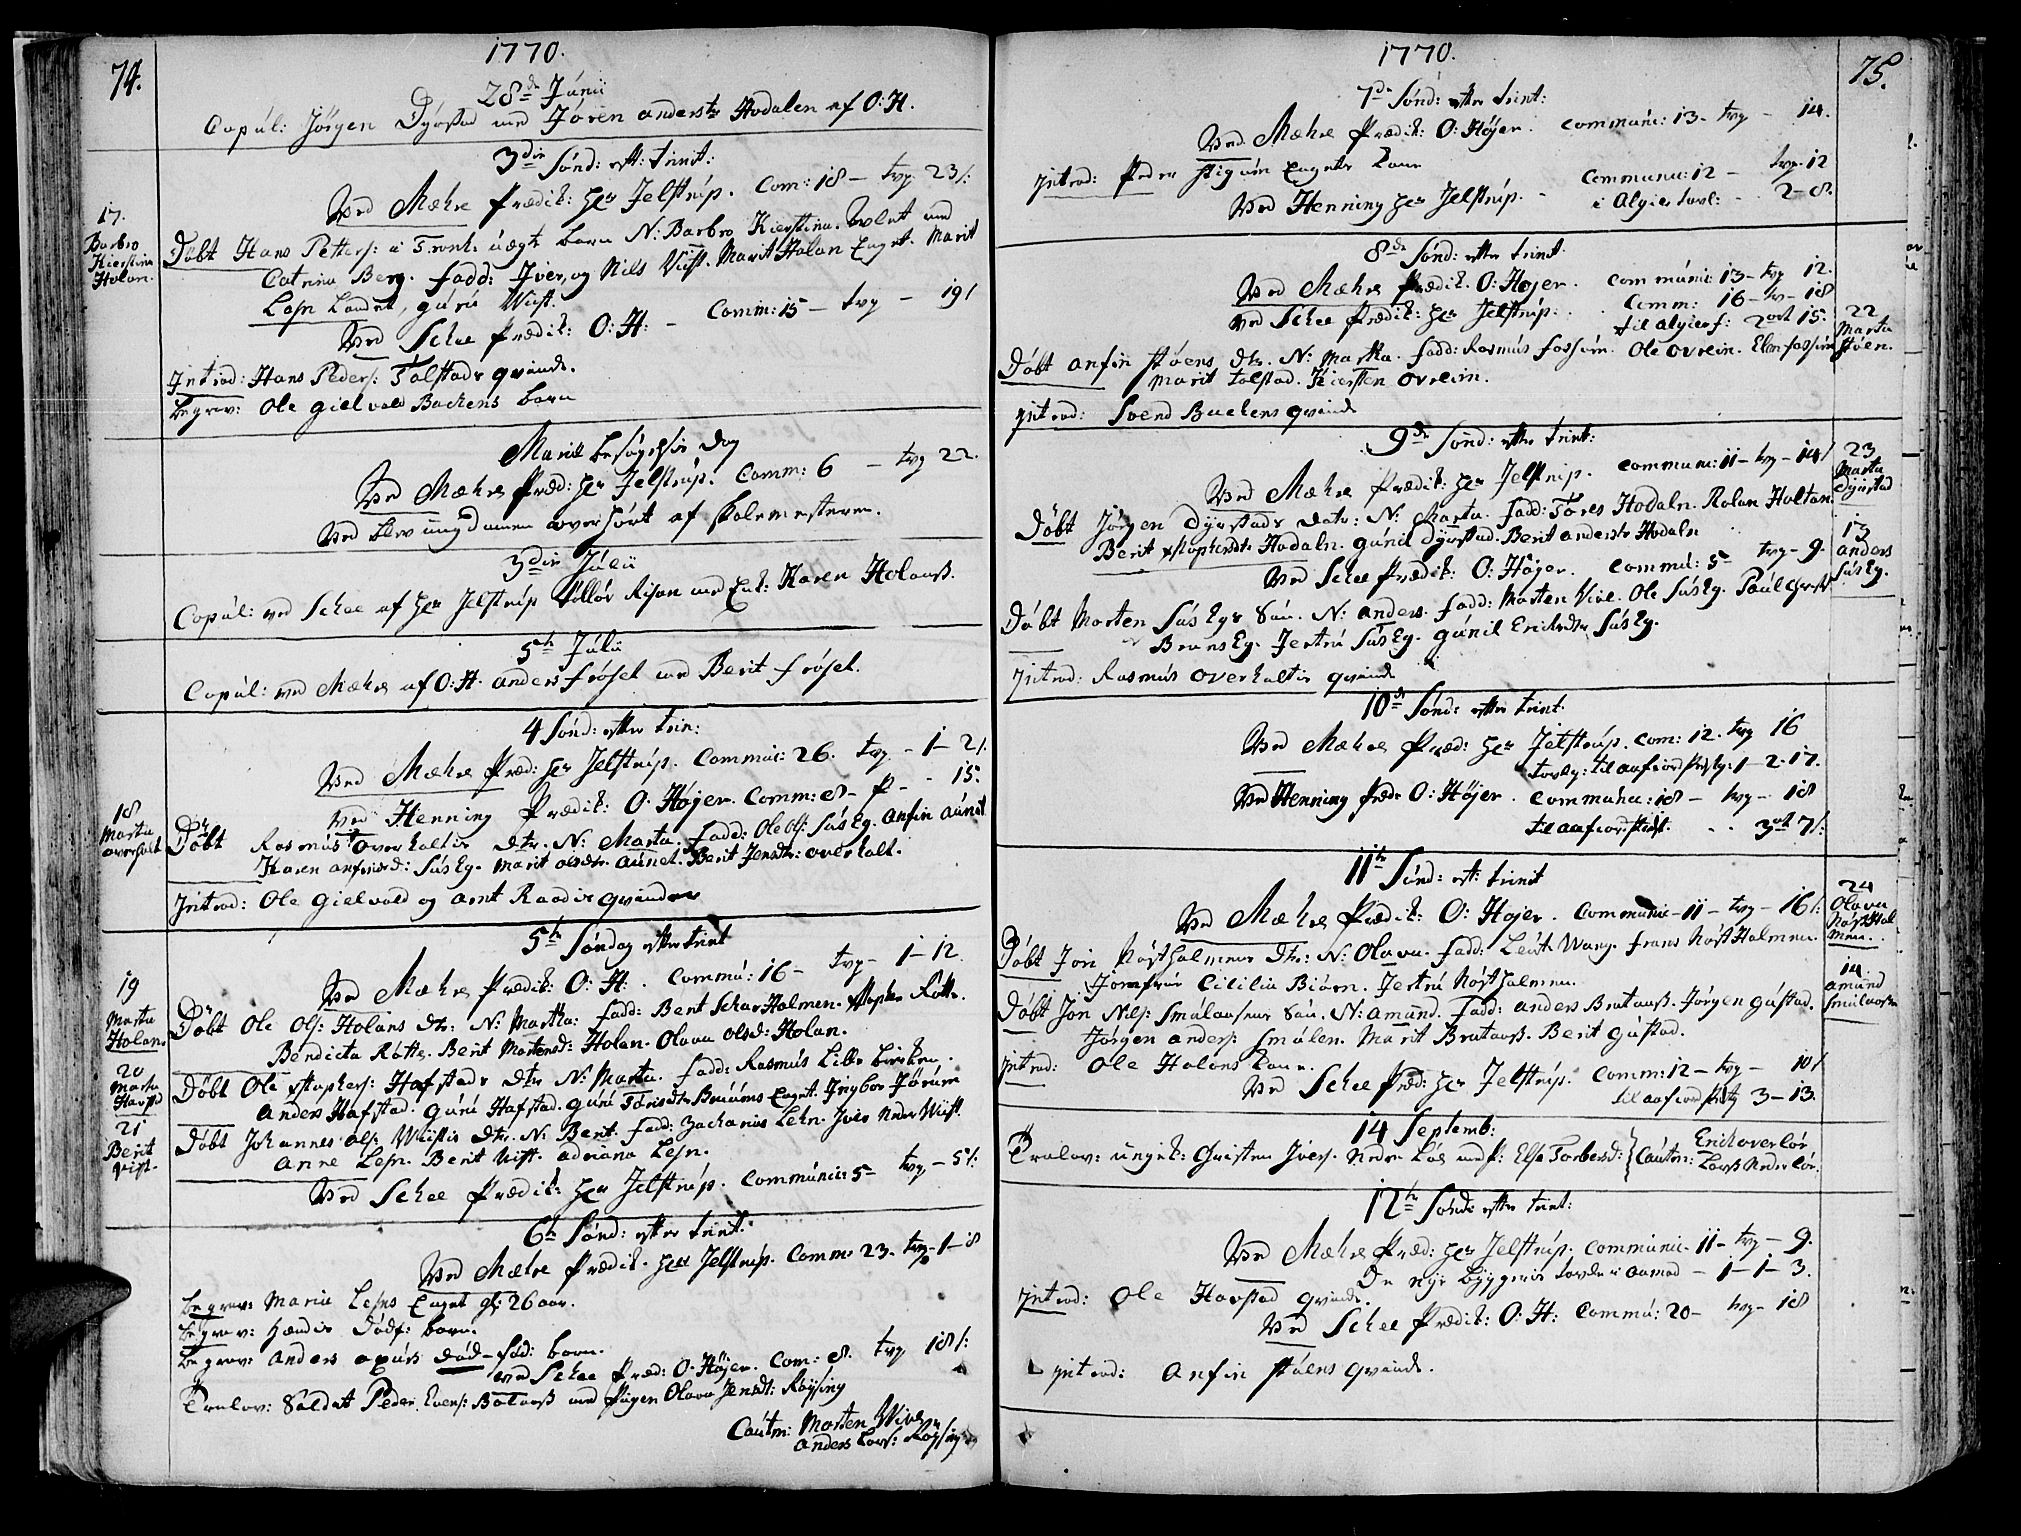 74.
1770.
28de Junii
Copul: Jörgen Dyrstad med Jören anderstr Hodalen af O: H.
3die Sönd: eft: trinit:
17.
Barbro
Kierstina
Holan.
Ved Mæhre Prædik: Hr Jelstrup. Com: 18 – tvg 23/:
Döbt Hans Petters: a Tronh: uægte barn N: Barbro Kierstina. avlet med
Catrina Berg. fadd: Iver, og Nils Vist. Marit Holan Enget. Marit
Lesn Landet, guru Vist.
Ved Schee Prædik: O: H: – Comm: 15 – tvg – 19/
Introd: Hans Peders: Tolstads qvinde.
begrav: Ole gielvold Backens barn
Mariæ besøgelsis Dag
Ved Mæhre Præd: Hr Jelstrup. Comm: 6 – tvg 22.
Ved blev ungdomen overhört af skolemesteren.
3die Julii
Copul: ved Schee af Hr Jelstrup Rollor Risan med Enk: Karen Holanß.
5te Julii
Copul: ved Mæhre af O: H. anders frösel med Berit frösel.
4 Sönd: efter trin:
Ved Mæhre Præd: Hr Jelstrup. Commun: 26. tvg – 1 – 2/.
ved Henning Prædik: O: Höjer. Comm: 8 – P – 15.
18
Marta
overhalt
Döbt Rasmus overhaltis dtr. N: Marta. fadd: Ole Ols: Sus Eg. Anfin Aunet
Karen anfinsd: Sus Eg. Marit olsdtr. aunet. Berit Jensdtr: overhalt.
Introd: Ole gielvold og amt Raadis qvinder
5te Söndag efter trint
Ved Mæhre Prædik: O: H: . Commu: 16 – tvg – 1 – 12.
19
Marta
Holan
Döbt Ole Ols: Holans dtr. N: Martha: fadd: Bent Schar Holmen. Stopher Rötte.
Bendicta Rötte. Berit Mortensd: Holan. Olava olsd: Holan.
20
Marta
Havstad
Döbt Ole Stophers: Hafstads dtr N: Marta. fadd: Rasmus Lille
anders Hafstad. guru Hafstad. guru Enget. Ingbor Jörum
21
Berit
Vist.
Döbt Johannes ols: Wistis dtr. N: Berit. fadd: Zacharias Lesn. Iver Neder Wist.
Anne Lesn. Berit Vist. adriana Lesn.
Ved Schee Prædik: Hr Jelstrup. Communic: 5 – tvg – 5/:
6te Sönd: efter trint.
Ved Mæhre Prædik. Hr Jelstrup. Comm: 23. tvg – 1 – 8
begrav: Marie Lesns Enget gl: 26 aar.
begrav: Dödf: barn.
begrav: anders död-föd: barn.
ved Schee Præd: O: Höjer. Com: 8. tvg 18/:
Trolov: Soldat Peder Evens: Bolanß med Pigen Olava Jensdt: Röysing
Cautn: Morten Wivn
anders Lars: Röysing
75.
1770.
7de Sönd: efter trint:
Ved Mæhre Prædik: O: Höjer. Communic: 13 – tvg – 14.
Introd: Peder Enget kone
Ved Henning Hr Jelstrup. – Communi: 12 – tvg. 12
i Algier tavl: – 2 – 8.
8de Sönd: efter trint.
Ved Mæhre Prædik. O: Højer. Communic: 13 – tvg 12.
ved Schee Prædik: Hr Jelstrup. . Comm: 16 – tv – 18
til algiers: 2ort 15.
22
Marta
Støen.
Döbt Anfin Støens dtr. N: Martha. fadd: Rasmus fossum. Ole ovrein. Elen fossum
Marit tolstad. Kiersten ovrein.
Introd: Svend Buckens qvinde
9de Sönd: efter trint:
Ved Mæhre Prædik: Hr Jelstrup. Communi: 11 – tvg – 14/
23
Marta
Dyrstad
Döbt Jörgen Dyrstads datr: N: Marta. fadd: Tores Hodaln. Rolan Holtan
Berit Stophersdtr Hodaln. gunil Dyrstad. Berit anderstr Hodaln
Ved Schee Prædik: O: Höjer. Commu: 5 – tvg – 9.
13
anders
Sus Eg.
Döbt Morten Sus Egs Sön. N: anders. fadd: Morten Vive. Ole Sus Eg. Paul
Bruns Eg. Jertru Sus Eg. gunil Ericksdtr Sus Eg.
Introd: Rasmus overhaltis qvinde
10de Sönd: efter trint:
Ved Mæhre Præd: Hr Jelstrup. Com: 12. tvg 16
tavlg: til aafiord kirke: 1 – 2 – 17.
Ved Henning Præd: O: Höjer. Communic: 18 – tvg – 18
til aafiord kirk. . . 3ort 7/:
11te Sönd: eft: trinit
Ved Mæhre Prædik: O: Höjer. Communic – 11 – tvg – 16/:
24
Olava
Nöst Hol
men.
Döbt Jon Nöstholmens dtr: N: Olava. fadd: Leut: Wang. frans Nöst Holmen.
Jomfrue Cicilia Biörn. Jertru Nöstholmen.
14.
amund
Smulausen
Döbt Jon Nils: Smulausens Sön. N: amund. fadd: anders Bratauß. Jörgen gustad.
Jörgen anders: Smulen. Marit Bratauß. Berit gustad.
Introd: Ole Holans kone.
Ved Schee Præd: Hr Jelstrup. Comm: 12 – tvg – 10/
til aafiord kirk 3 – 13.
14 Septemb:
Trolov: ungk: Christen Ivers. Neder Löe med P: Else Torbersd: Cautn: Erich overlöe
Larß Nederlöe.
12te Sönd: efter trint:
Ved Mæhre Præd: Hr Jelstrup. Communic – 11 – tvg – 9.
De nye byggeris tavle i aamod – 1 – 1 – 3.
Introd: Ole Havstad qvinde.
Ved Schee Prædik: O: H: Commu: 20 – tvg – 18
Introd: Anfin Støens qvinde.